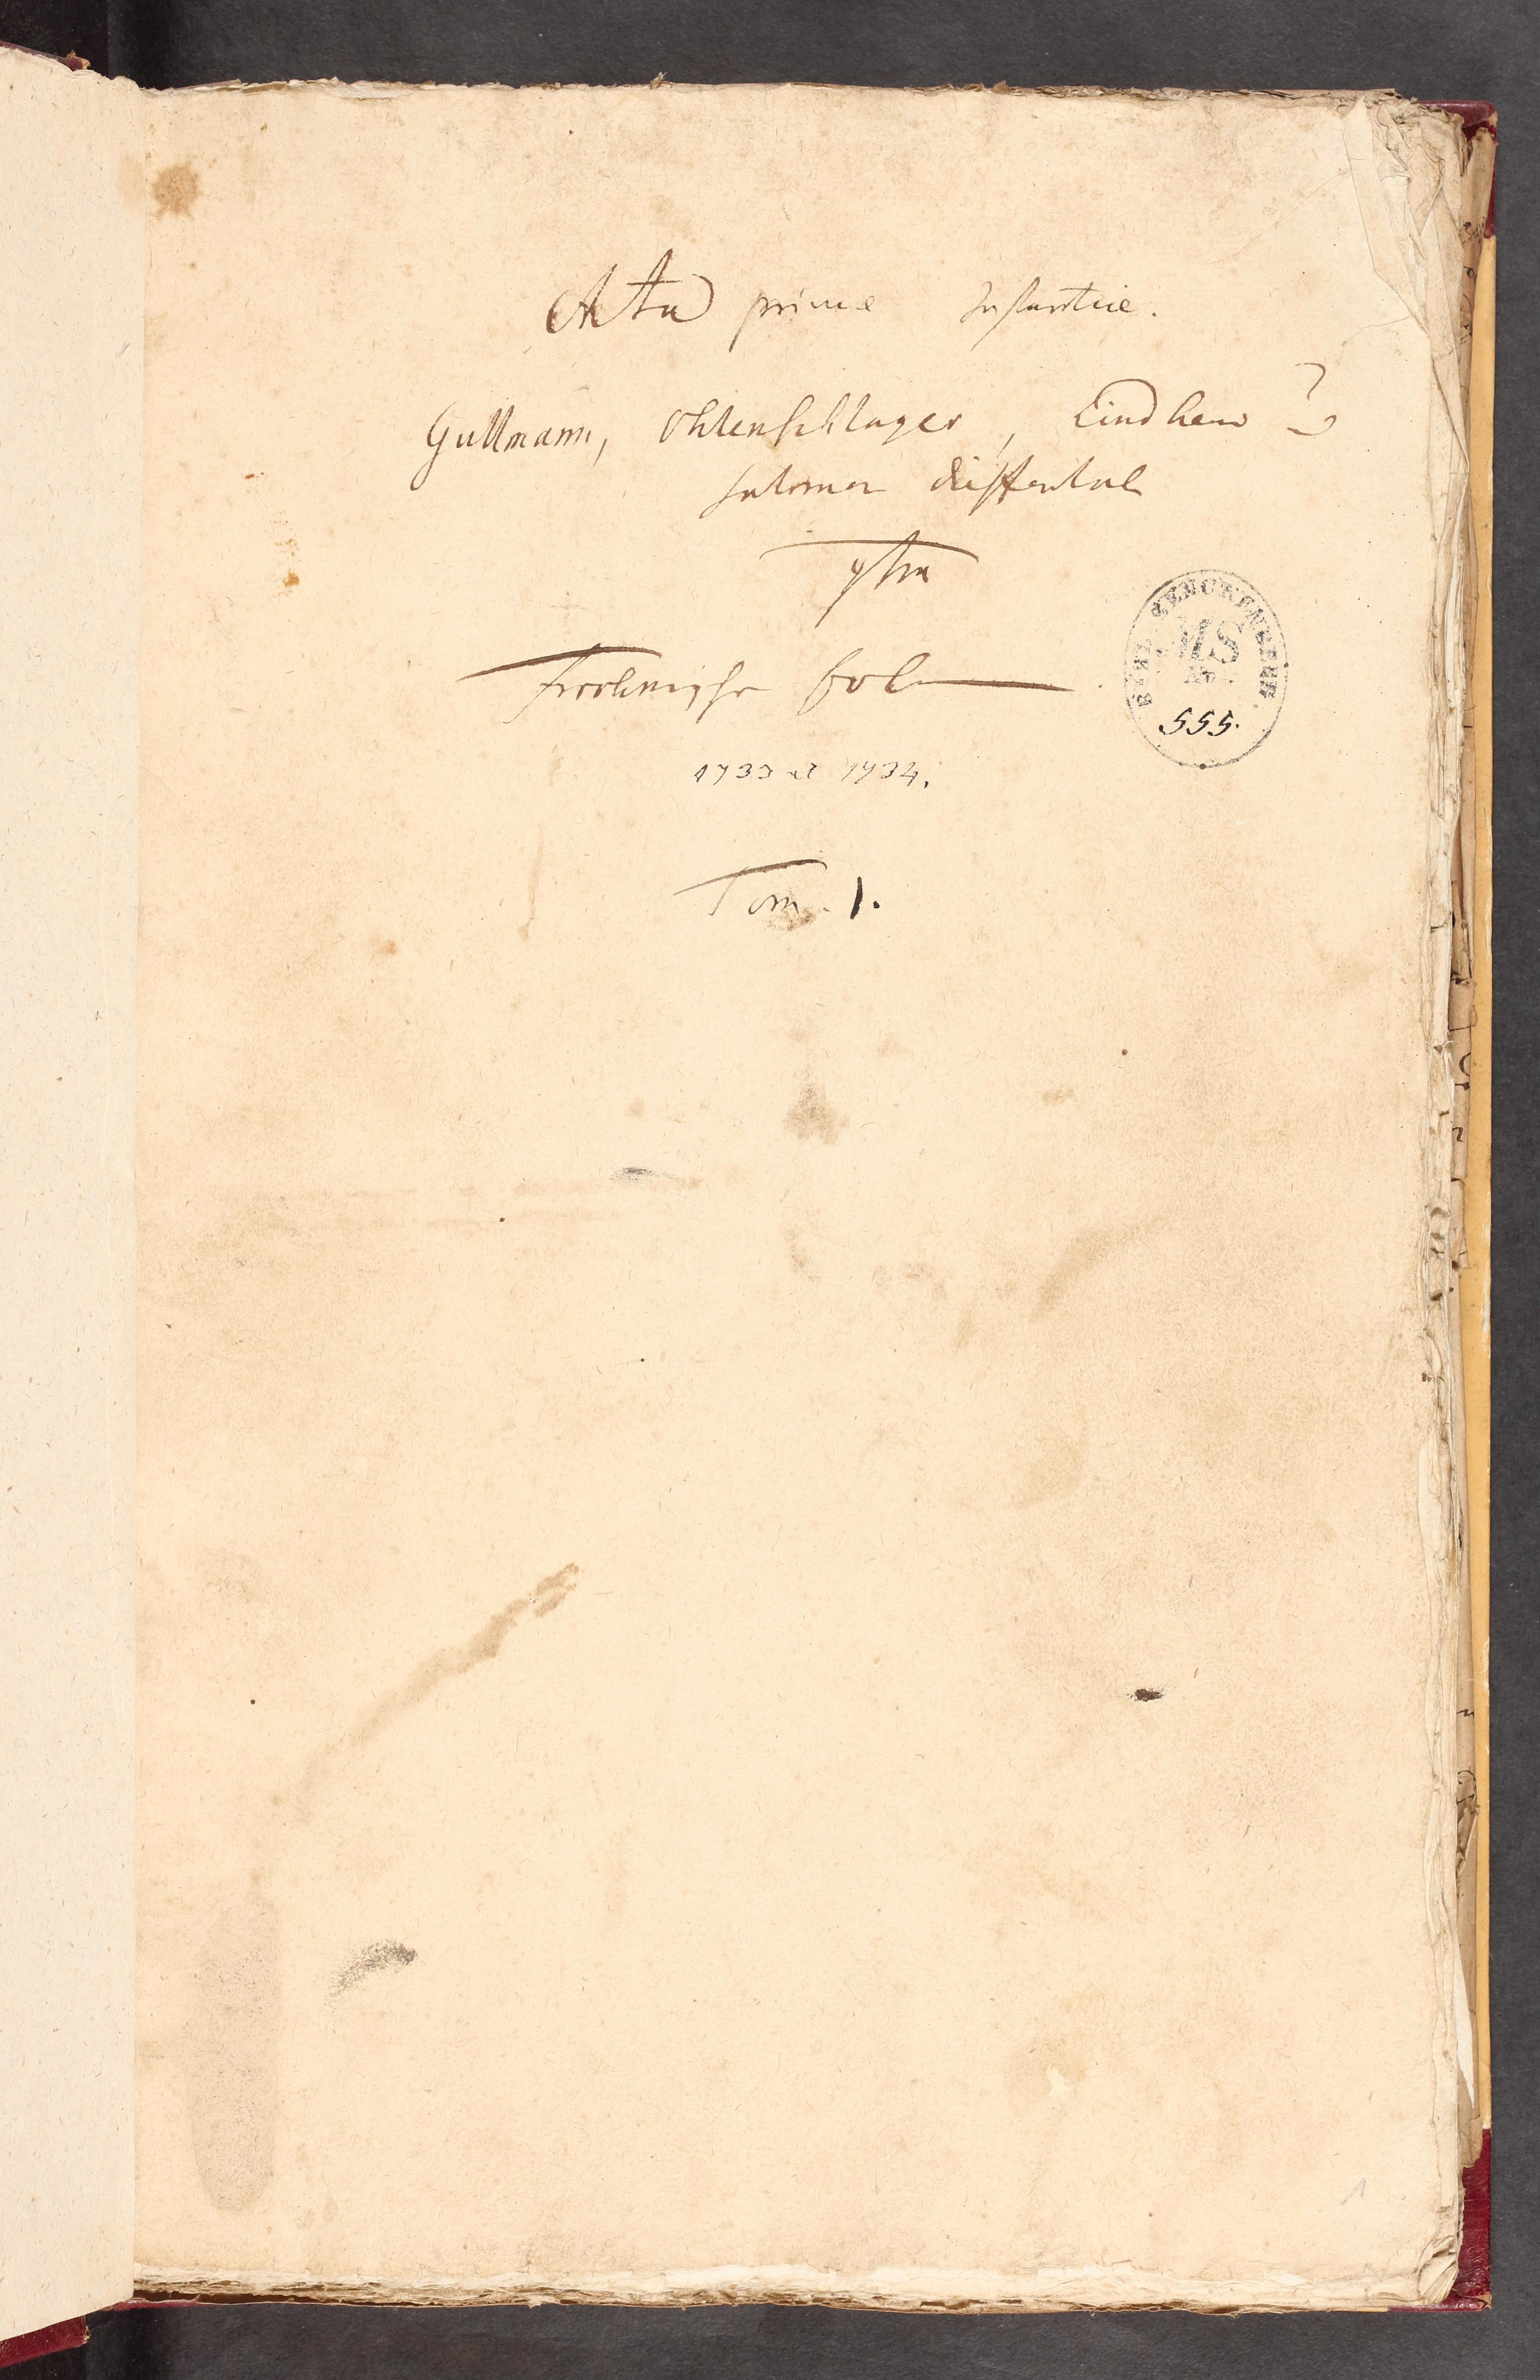 Acta prime Instantiae.
Gullmann, Ohlenschlager, Lindheim
Salomon Diffental
Ctra
Frohnische
1733 et 1734.
Tom. 1.
BIBL. SENCKENBERG.
MS
No.
555.
1